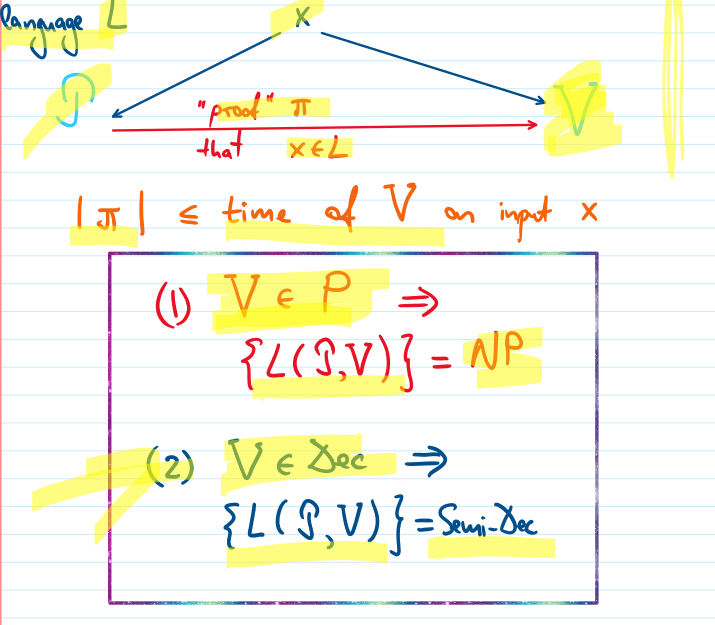 language L
x
P
"proof" π
V
that x ∈ L
|π| ≤ time of V on input x
(1) V ∈ P ⇒
{L(P,V)} = NP
(2) V ∈ Dec ⇒
{L(P,V)} = Semi-Dec